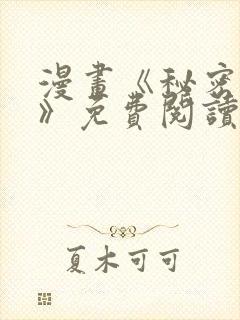 漫畫《秘密
》免費閱讀
夏木可可